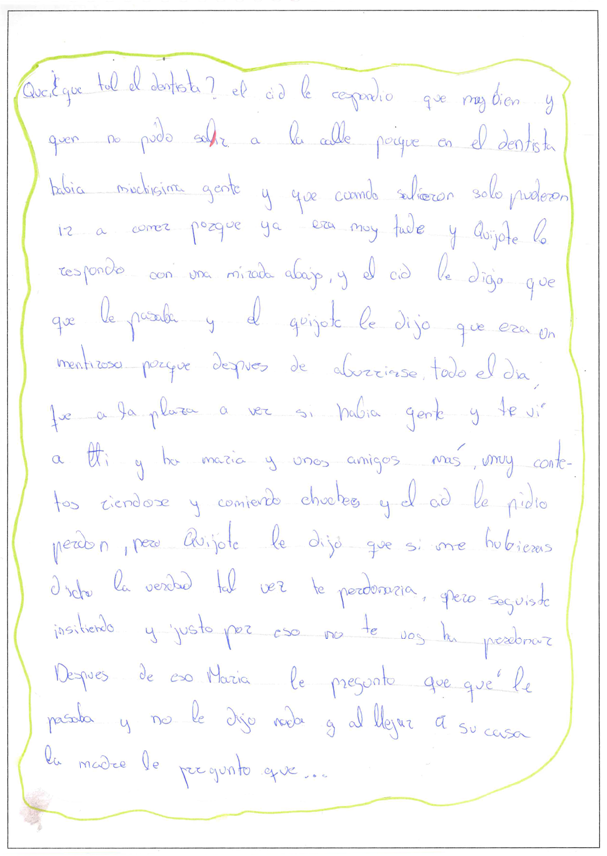 Que,¿que tal el dentista? el cid le respondio que muy bien y
quen no pudo salir a la calle porque en el dentista
babia muchisima gente y que cuando salieron solo puderon
ir a comer porque ya era muy tade y Quijote lo
respondo con una mirada abajo, y el cid le digo que
que le pasaba y el quijote le dijo que era un
mentiroso porque despues de aburrirse, todo el dia,
fue a la plaza a ver si habia gente y te vi
a tti y ha maria y unos amigos más, muy conte-
tos riendose y comiendo chuches y el cid le pidio
perdon, pero Quijote le dijo que si me hubieras
dicho la verdad tal vez te perdonaria, pero seguiste
insitiendo y justo por eso no te vos ha perdonar
Despues de eso Maria le pregunto que qué le
pasaba y no le dijo nada y al llegar a su casa
la madre le pregunto que...